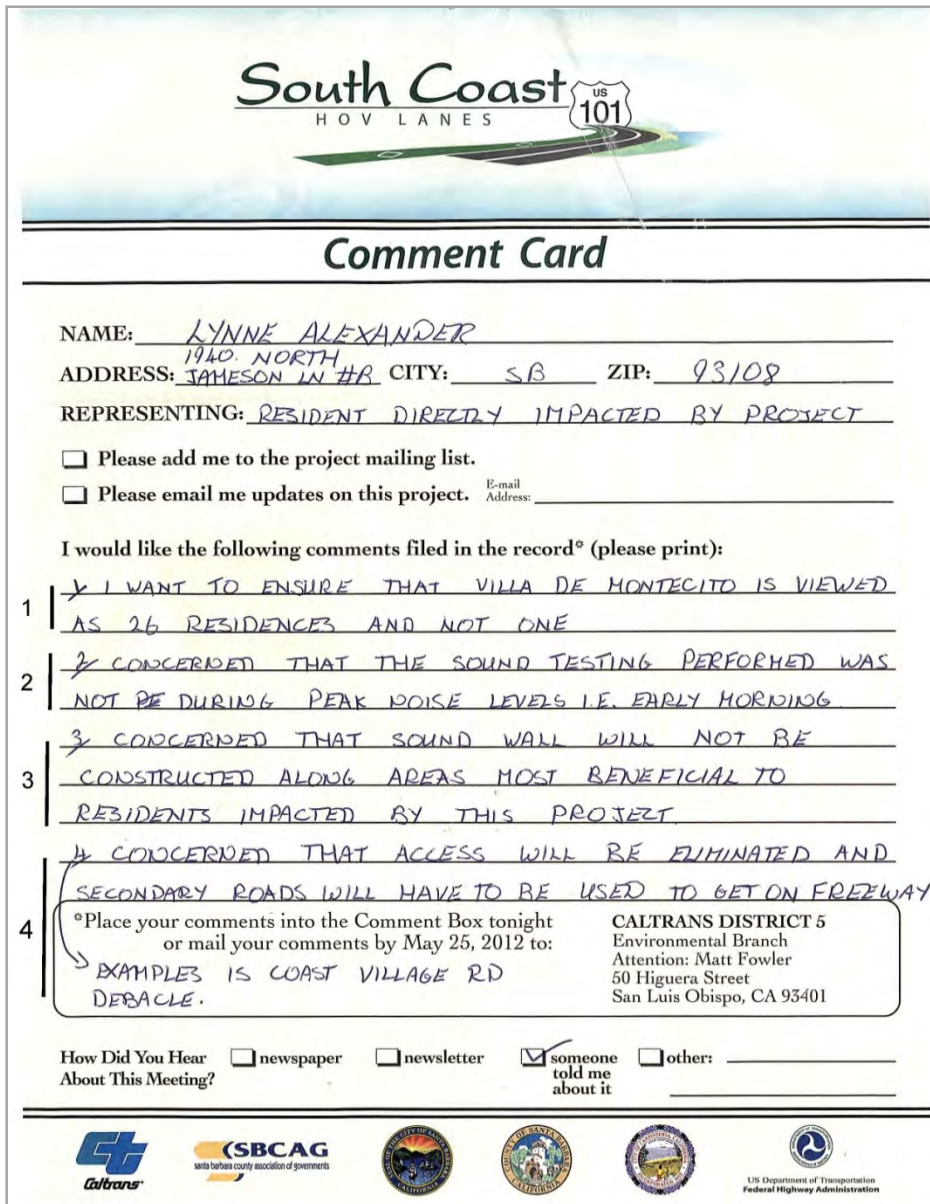 South Coast
HOV LANES
US
101
Comment Card
NAME: LYNNE ALEXANDER
1940. NORTH
ADDRESS: JAMESON LN #B CITY: SB ZIP: 93108
REPRESENTING: RESIDENT DIRECTLY IMPACTED BY PROJECT
Please add me to the project mailing list.
Please email me updates on this project. E-mail Address:
I would like the following comments filed in the record* (please print):
1 1/ I WANT TO ENSURE THAT VILLA DE MONTECITO IS VIEWED
AS 26 RESIDENCES AND NOT ONE
2 2/ CONCERNED THAT THE SOUND TESTING PERFORMED WAS
NOT DURING PEAK NOISE LEVELS I.E. EARLY MORNING
3/ CONCERNED THAT SOUND WALL WILL NOT BE
3 CONSTRUCTED ALONG AREAS MOST BENEFICIAL TO
RESIDENTS IMPACTED BY THIS PROJECT
4 CONCERNED THAT ACCESS WILL BE ELIMINATED AND
SECONDARY ROADS WILL HAVE TO BE USED TO GET ON FREEWAY
4 *Place your comments into the Comment Box tonight
or mail your comments by May 25, 2012 to:
EXAMPLES IS COAST VILLAGE RD
DEBACLE.
CALTRANS DISTRICT 5
Environmental Branch
Attention: Matt Fowler
50 Higuera Street
San Luis Obispo, CA 93401
How Did You Hear
About This Meeting?
newspaper
newsletter
someone
told me
about it
other:
Caltrans
SBCAG
santa barbara county association of governments
US Department of Transportation
Federal Highway Administration